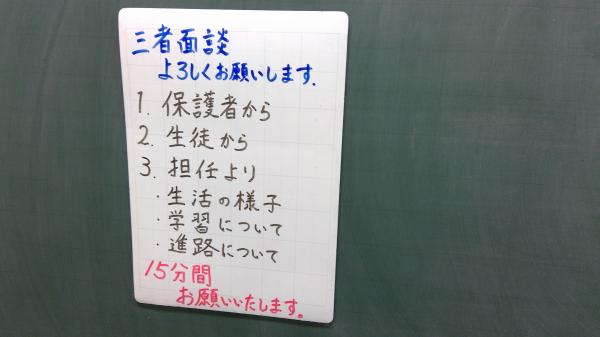 三者面談
よろしくお願いします.
1. 保護者から
2. 生徒から
3. 担任より
・生活の様子
・学習について
・進路について
15分間
お願いいたします。